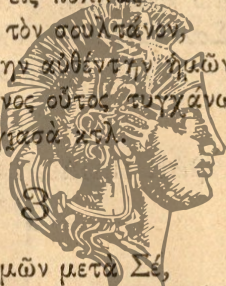 εἰς
τὸν σουλτάνον,
ην αὐθέντην ἡμῶν
νος οὗτος τυγχάνω
κτλ.
3
μῶν μετὰ Σέ,